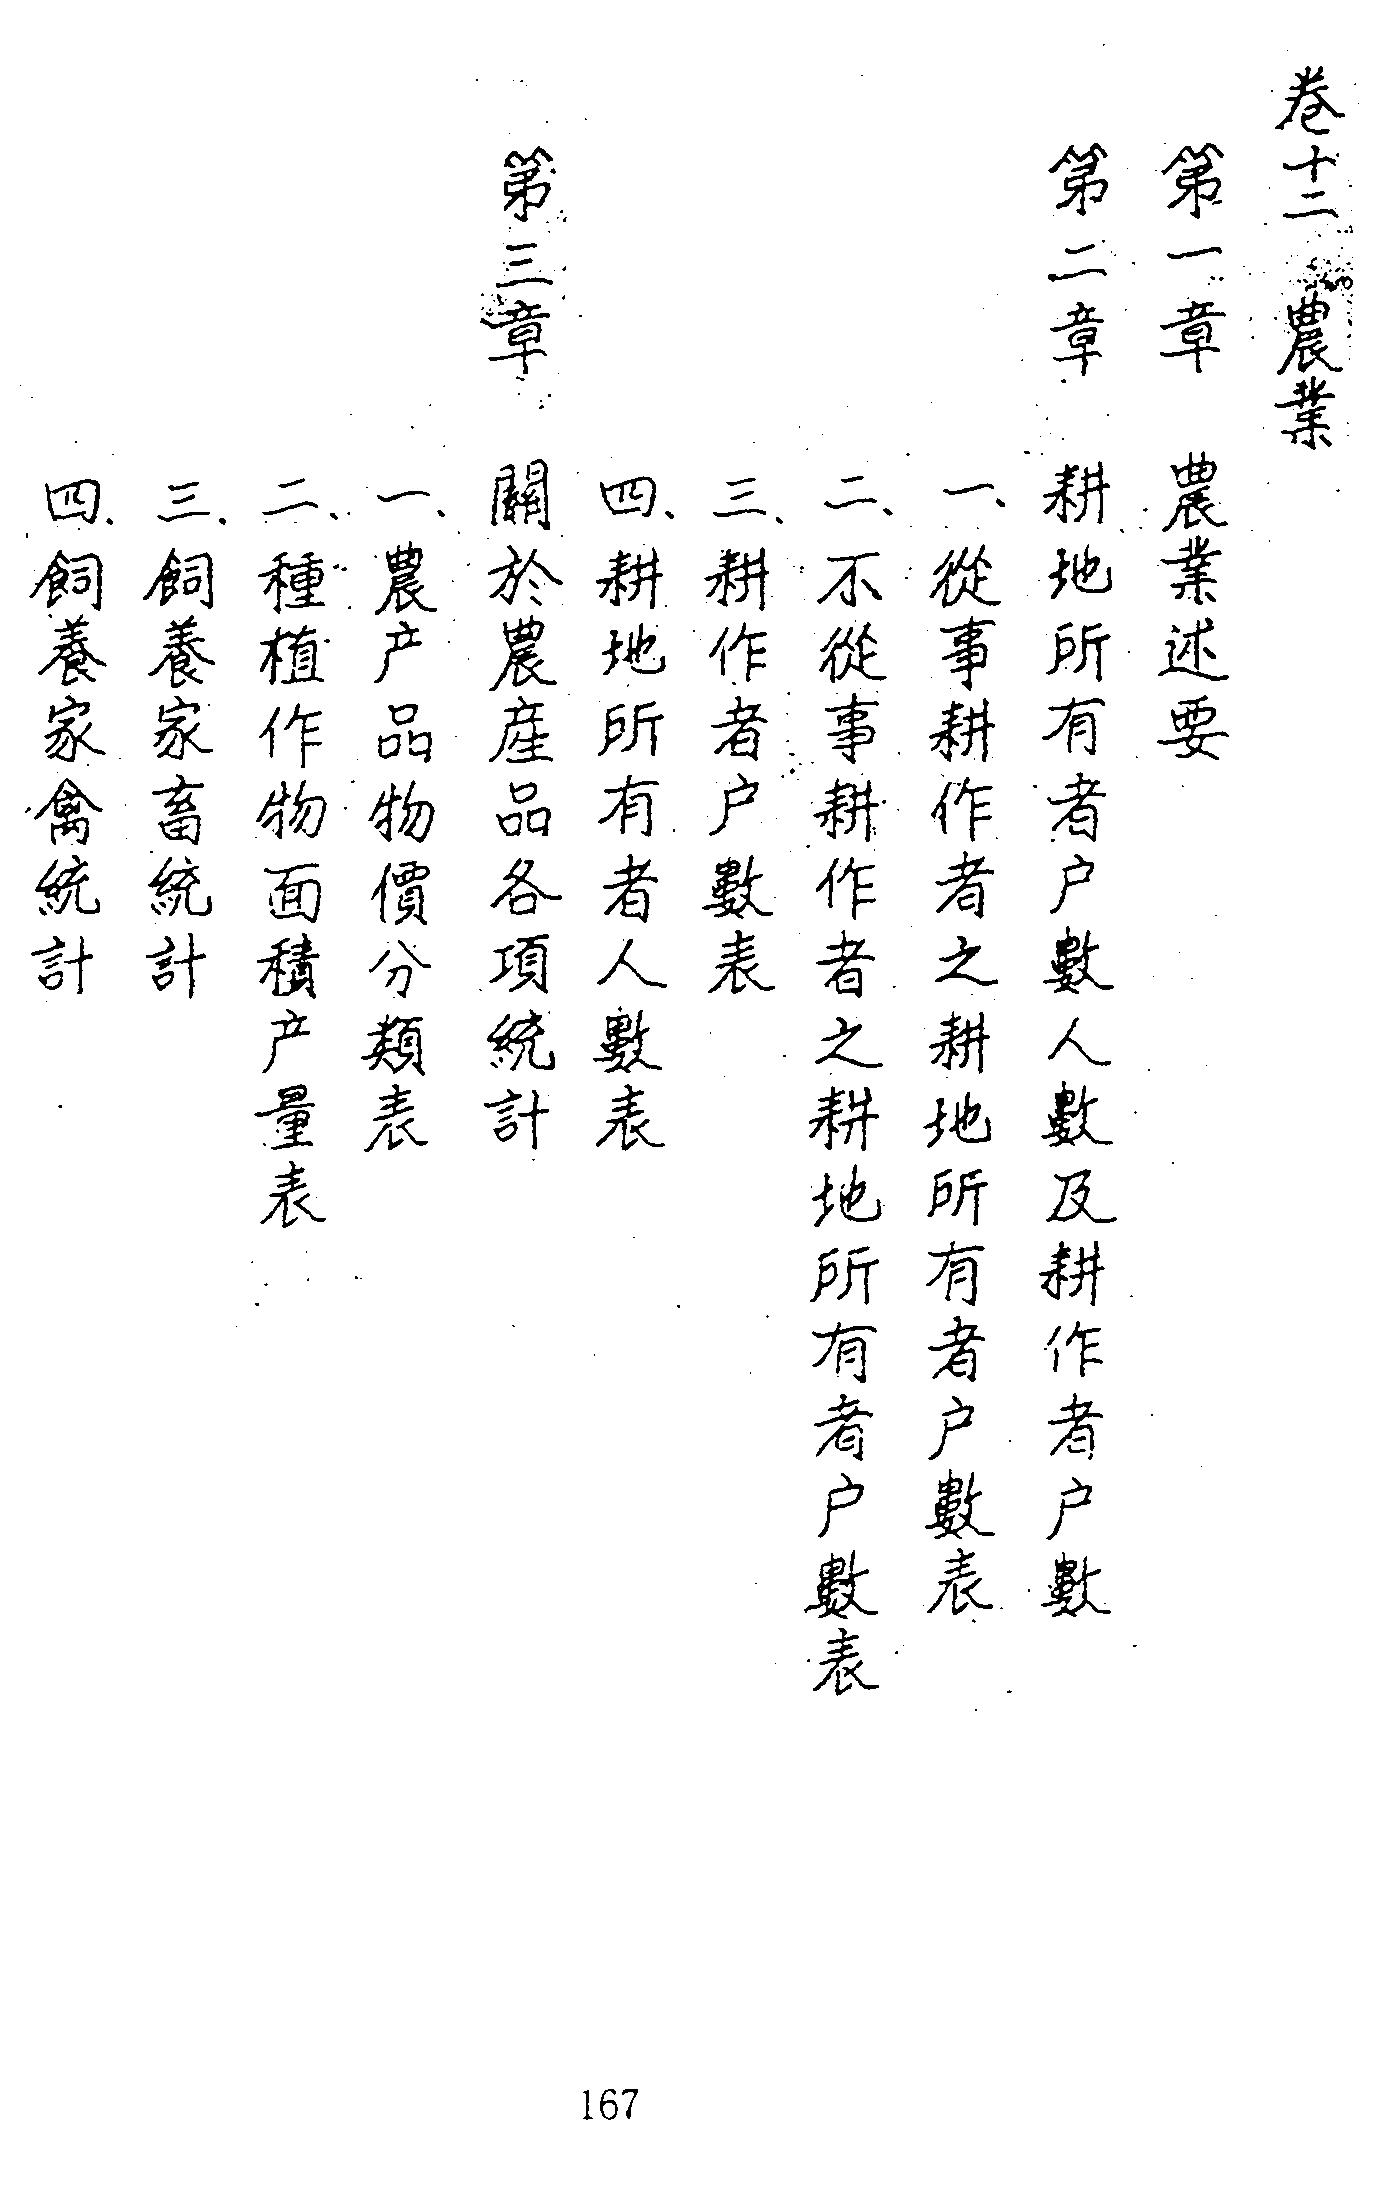 卷十二 農業
第一章 農業述要
第二章 耕地所有者户數人數及耕作者户數
一、從事耕作者之耕地所有者户數表
二、不從事耕作者之耕地所有者户數表
三、耕作者户數表
四、耕地所有者人數表
第三章 關於農産品各項統計
一、農产品物價分類表
二、種植作物面積产量表
三、飼養家畜統計
四、飼養家禽統計
167